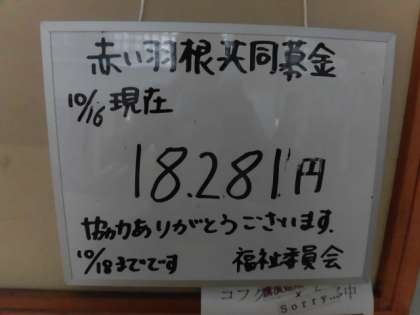 赤い羽根共同募金
10/16 現在
18.281.円
協力ありがとうございます.
10/18までです 福祉委員会
sorry...